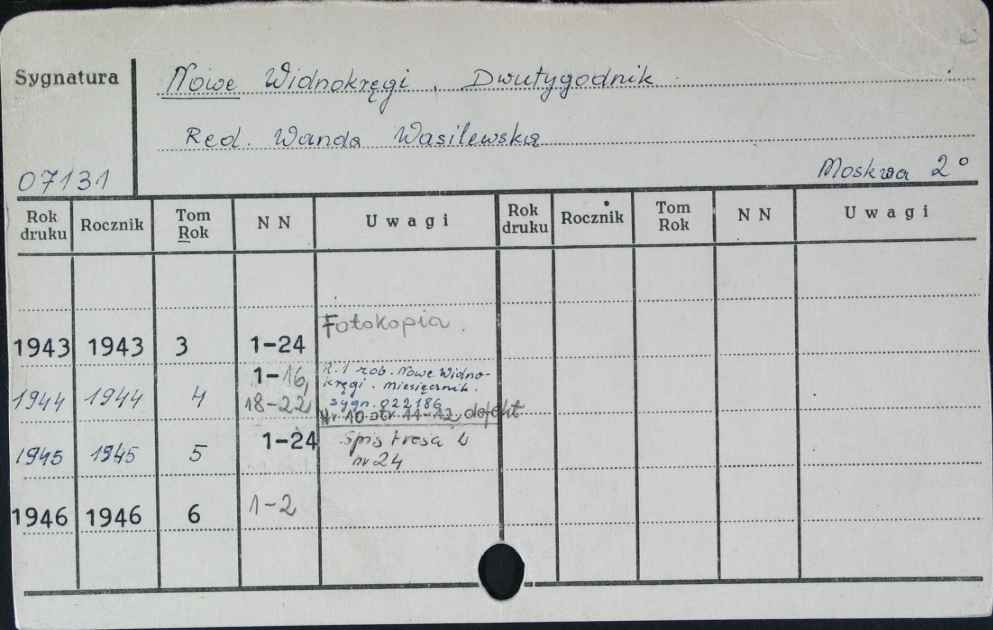 Sygnatura
Nowe Widnokręgi, Dwutygodnik
Red. Wanda Wasilewska
07131
Moskwa 2°
Rok druku Rocznik Tom Rok NN Uwagi Rok druku Rocznik Tom Rok NN Uwagi
Fotokopia.
1943 1943 3 1-24
1-16, R. 1 zob. Nowe Widno-
kręgi. miesięcznik.
1944 1944 4 18-22 sygn. 022186
Nr 10 str. 11-12 defekt
1-24 Spis treśc w
1945 1945 5 nr 24
1946 1946 6 1-2